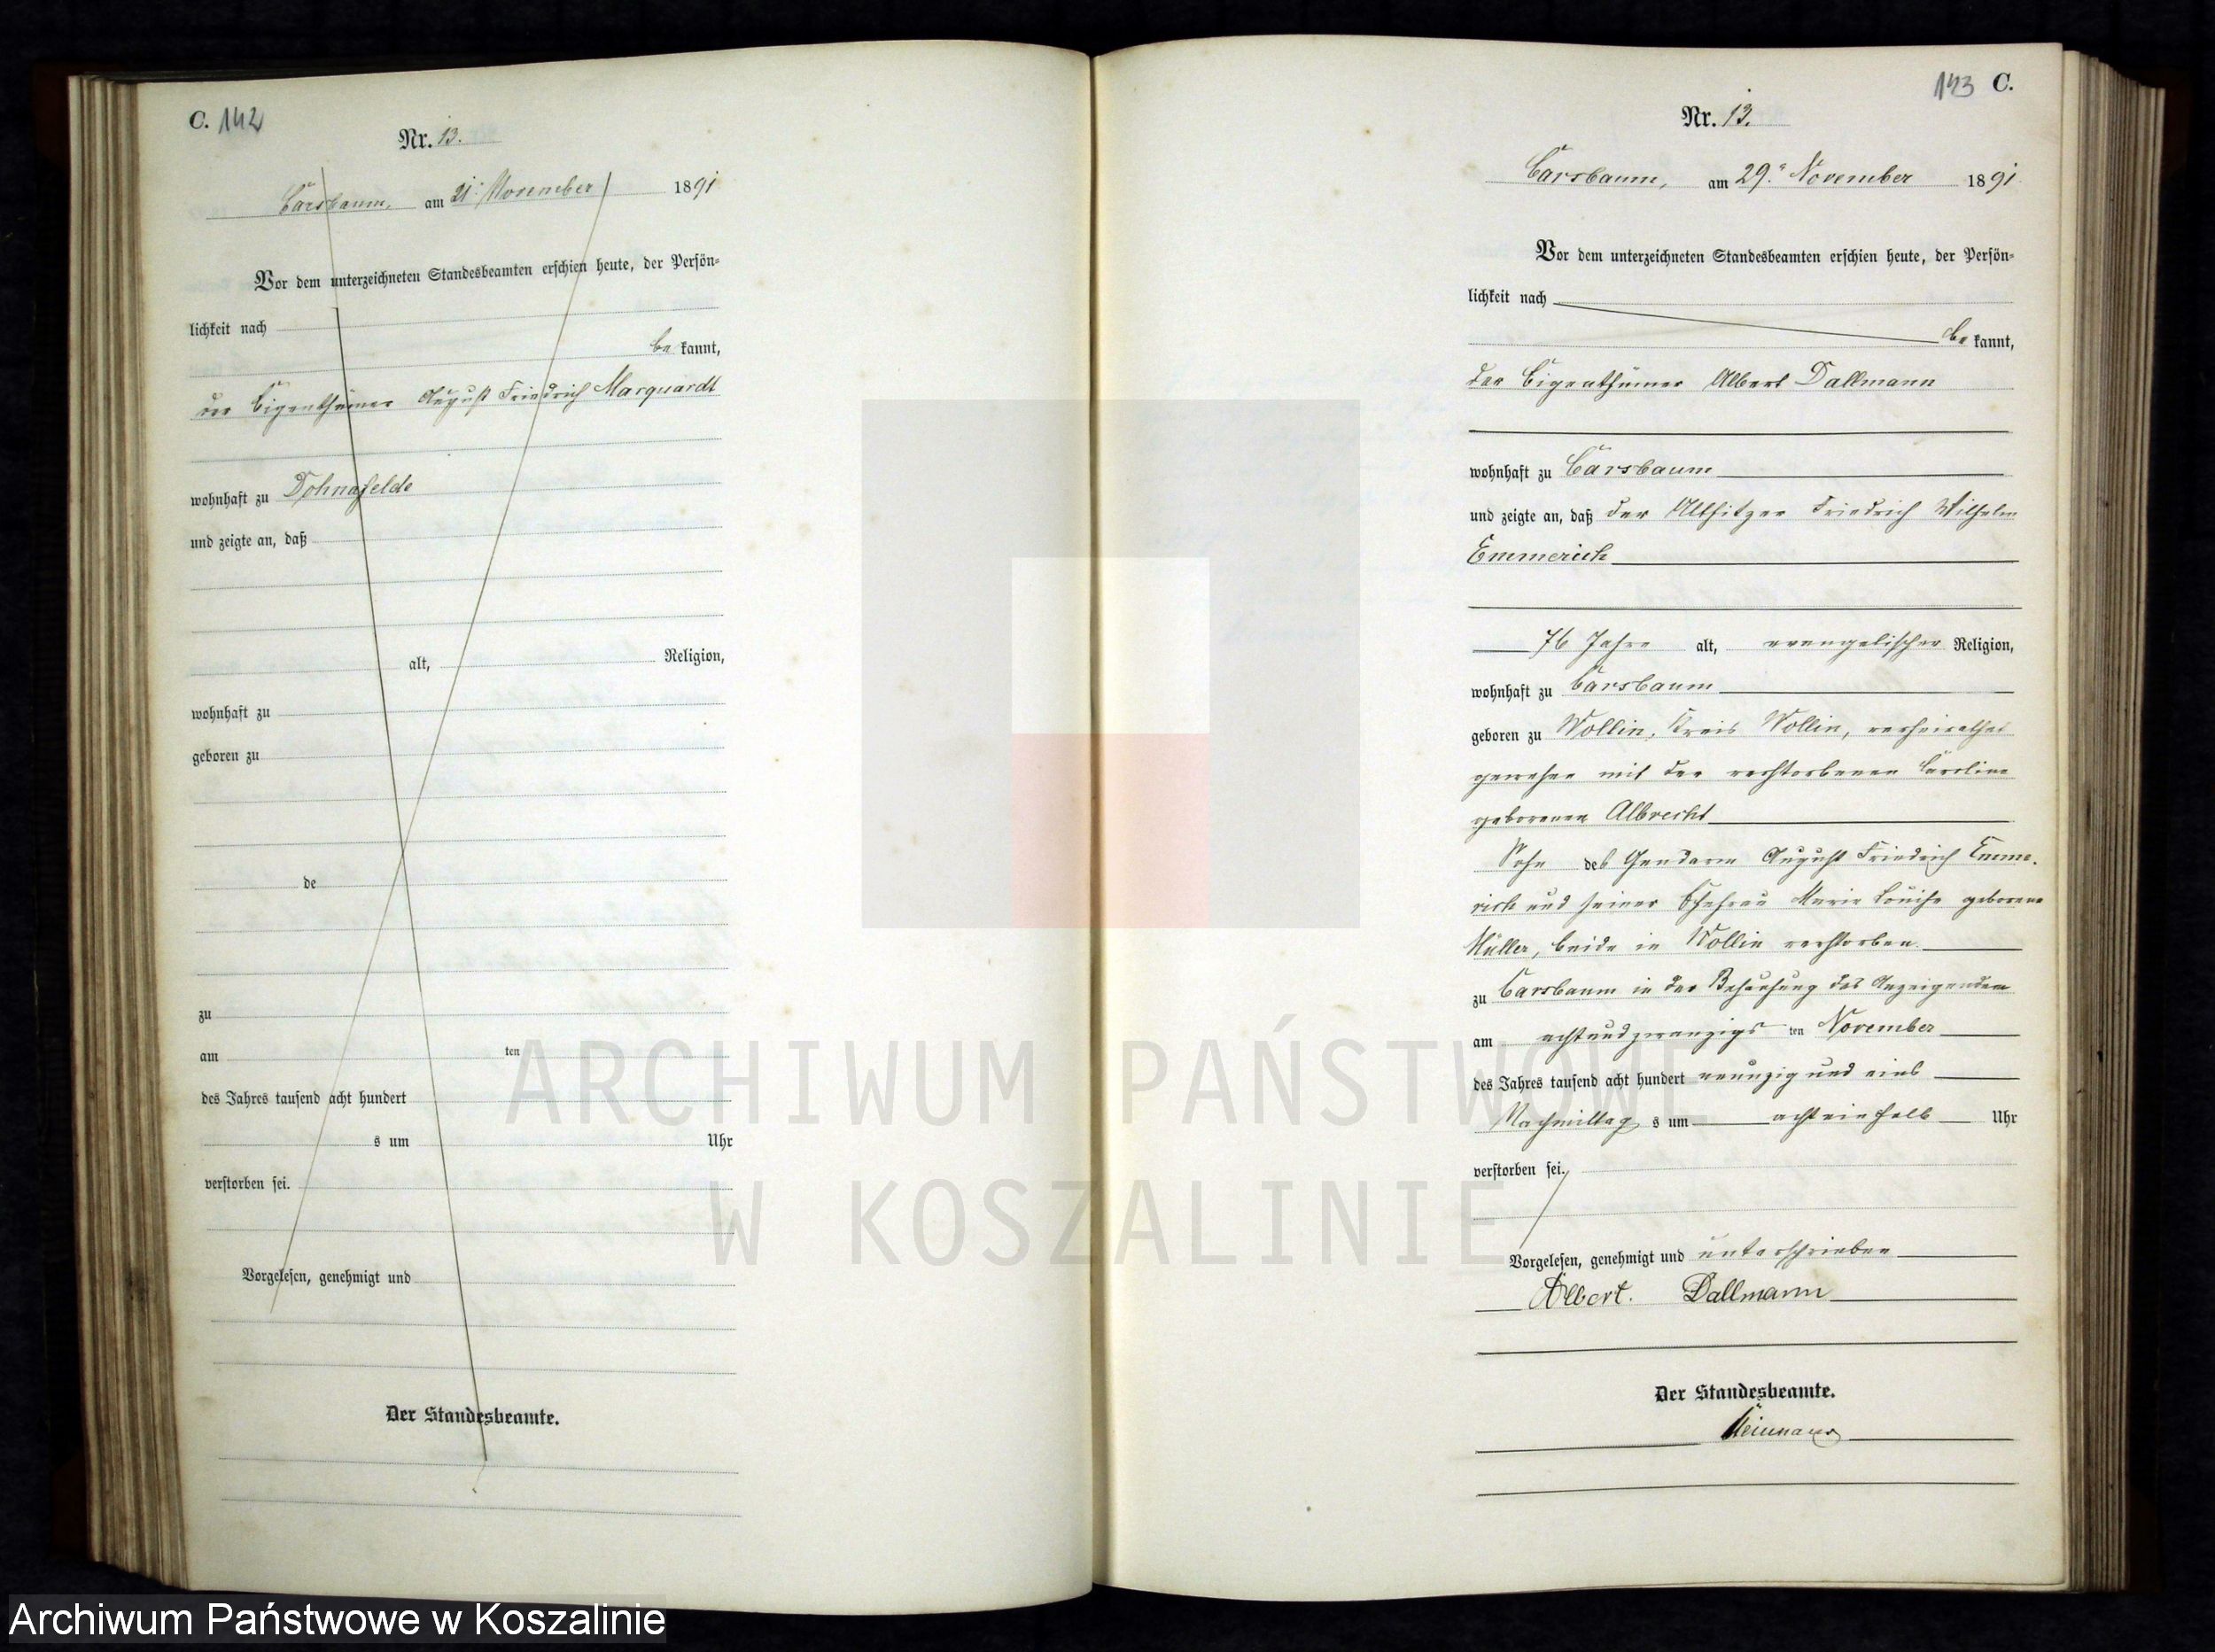 C. 142
Nr. 13.
Carsbaum, am 21. November 1891
Vor dem unterzeichneten Standesbeamten erschien heute, der Persön-
lichkeit nach
be kannt,
der Eigenthümer August Friedrich Marquardt
wohnhaft zu Dohnafelde
und zeigte an, daß
alt, Religion,
wohnhaft zu
geboren zu
de
zu
am ten
des Jahres tausend acht hundert
s um Uhr
verstorben sei.
Vorgelesen, genehmigt und
Der Standesbeamte.
143 C.
Nr. 13.
Carsbaum, am 29. November 1891
Vor dem unterzeichneten Standesbeamten erschien heute, der Persön-
lichkeit nach
be kannt,
der Eigenthümer Albert Dallmann
wohnhaft zu Carsbaum
und zeigte an, daß der Altsitzer Friedrich Wilhelm
Emmerich
76 Jahre alt, evangelischer Religion,
wohnhaft zu Carsbaum
geboren zu Wollin, Kreis Wollin, verheirathet
gewesen mit der verstorbenen Caroline
geborenen Albrecht
Sohn des Gendarm August Friedrich Emme-
rich und seiner Ehefrau Marie Louise geborene
Müller, beide in Wollin verstorben.
zu Carsbaum in der Behausung des Anzeigenden
am achtundzwanzigs ten November
des Jahres tausend acht hundert neunzig und eins
Nachmittag s um acht ein halb Uhr
verstorben sei.
Vorgelesen, genehmigt und unterschrieben
Albert. Dallmann
Der Standesbeamte.
ARCHIWUM PAŃSTWOWE
W KOSZALINIE
Archiwum Państwowe w Koszalinie